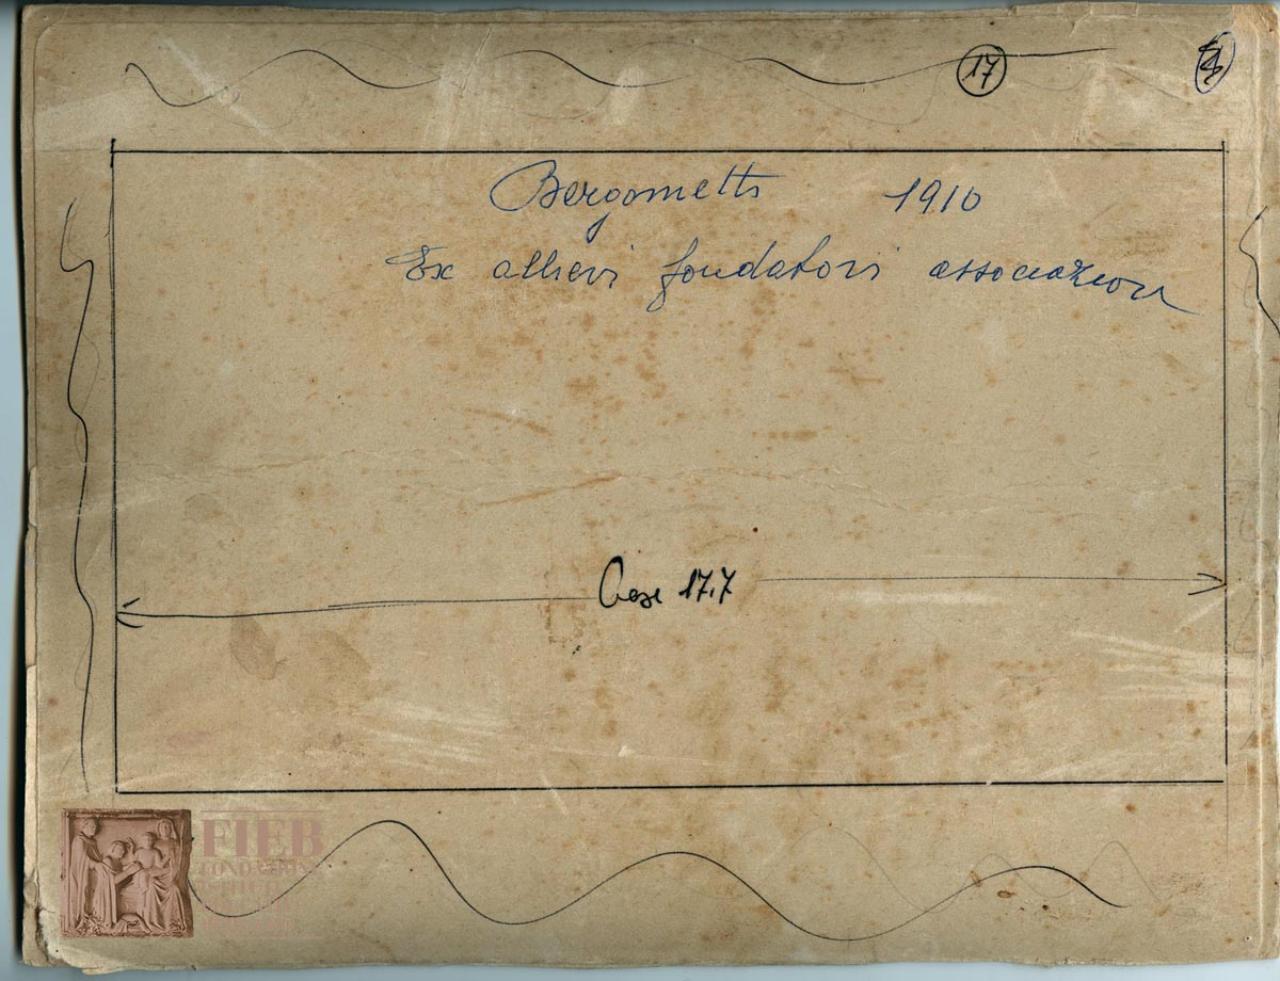 17
Bergometti 1910
Ex allievi fondatori associazion
Base 17.7
FIEB
FONDAZIONE